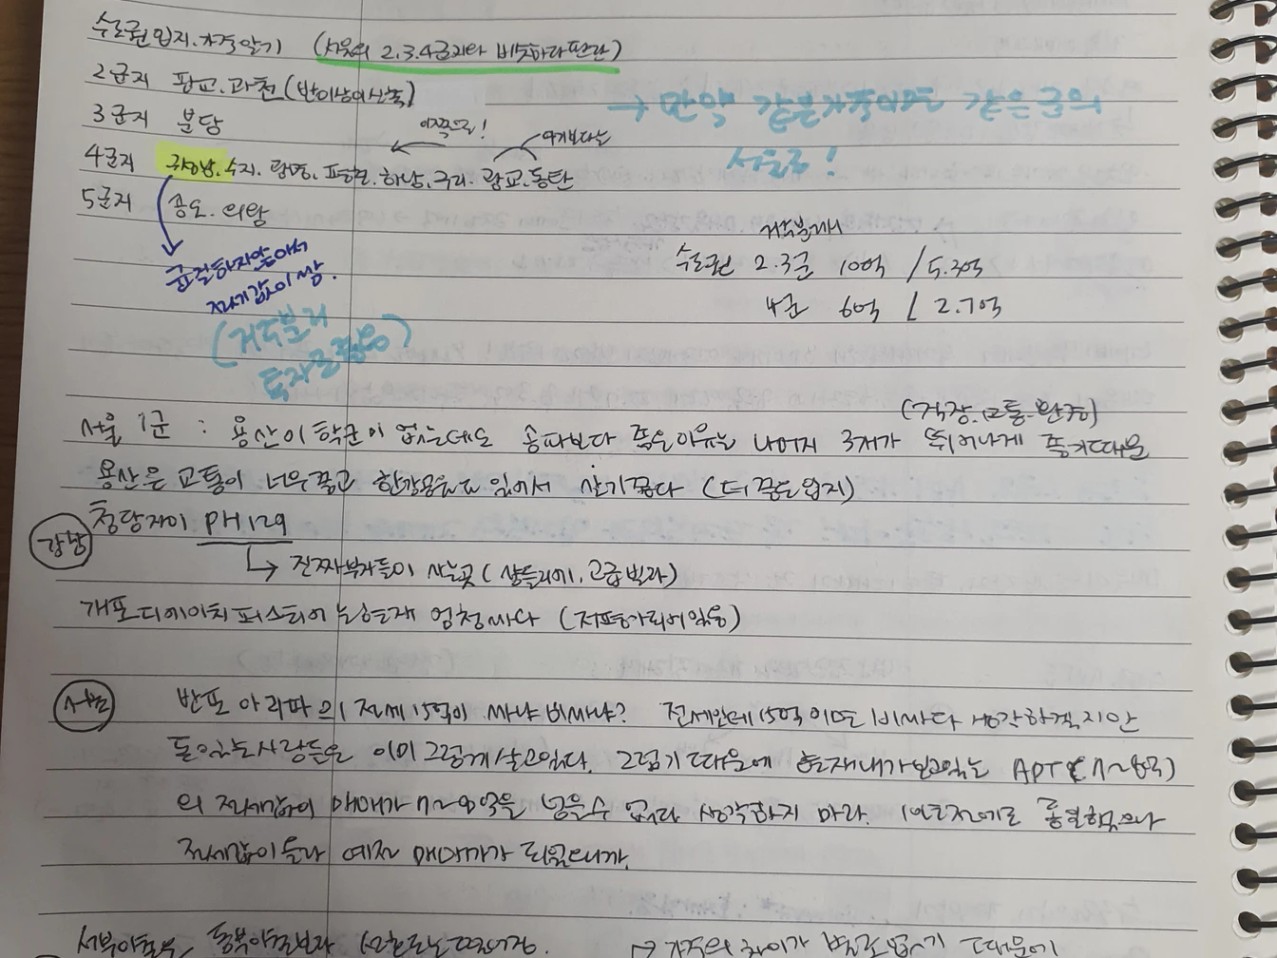 수도권 입지. 가격 알기 (서울의 2.3.4급지와 비슷하다 판단)
2급지 판교. 과천 (반이상이 신축)
3급지 분당
→ 만약 같은가격이면 같은급의 서울로!
이쪽으로! 여기보다는
4급지 수지. 광명. 평촌. 하남. 구리. 광교. 동탄
5급지 송도. 의왕
균질하지않아서
전세값이 쌈.
(거주분리 투자로좋음)
거주분리시
수도권 2.3급 10억 / 5.3억
4급 6억 / 2.7억
(직장.교통.환경)
서울 1급 : 용산이 학군이 없는데도 송파보다 좋은이유는 나머지 3개가 뛰어나게 좋기때문
용산은 교통이 너무좋고 한강공원도 있어서 살기좋다 (더 좋은입지)
강남
청담자이 PH129
↳ 진짜부자들이 사는곳 (샹들리에. 고급빌라)
개포디에이치퍼스티어는 현재 엄청싸다 (저평가되어있음)
서초
반포 아리팍의 전세 15억이 싸냐 비싸냐? 전세인데 15억이면 비싸다 생각하겠지만
돈있는사람들은 이미 그렇게 살고있다. 그렇기 때문에 현재 내가 알고있는 APT (7~8억)
의 전세값이 매매가 7~8억을 넘을수 없다 생각하지 마라.
전세값이 늘 예전 매매가가 되었으니까.
→ 가격의 차이가 별로 없기 때문에